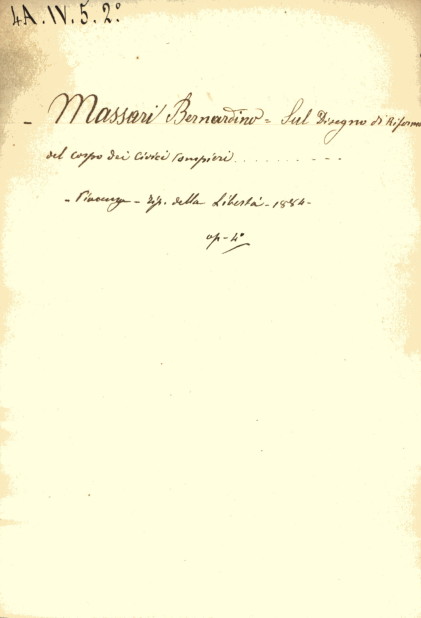 4A.IV.5.2º
- Massari Bernardino = Sul Disegno di Riforma
del corpo dei Civici Pompieri . . . . . . . . - - -
- Piacenza - tip. della Libertà - 1884 -
op - 4º